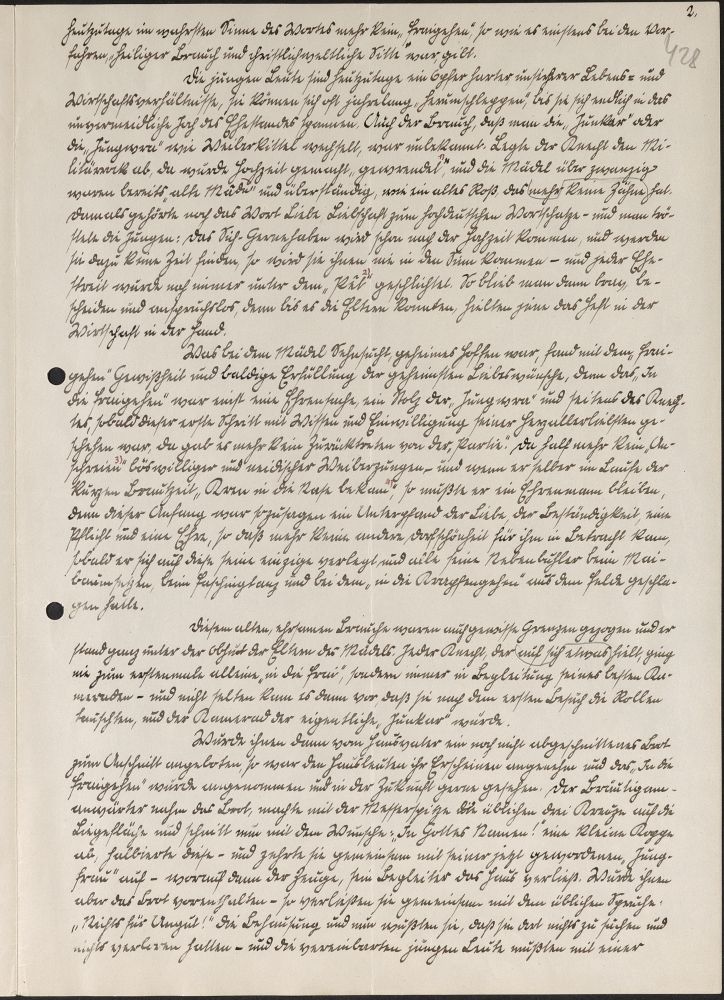 2.
428
heutzutage im wahrsten Sinne des Wortes mehr kein „Fraigehen", so wie es einstens bei den Vor-
fahren „heiliger Brauch und christlichweltliche Sitte" war, gilt.
Die jungen Leute sind heutzutage ein Opfer harter unsicherer Lebens= und
Wirtschaftsverhältnisse, sie können sich oft jahrelang „herumschleppen", bis sie sich endlich in das
unvermeidliche Joch des Ehestandes spannen. Auch der Brauch, daß man die „Junkar" oder
die „Jungwra" wie Weiberkittel wechselt, war unbekannt. Legte der Knecht den Mi-
litärrock ab, da wurde Hochzeit gemacht, und die Mädel über zwanzig
waren bereits „alte Mäda" und überständig, wie ein altes Roß, das mehr keine Zähne hat.
Damals gehörte noch das Wort Liebe Liebschaft zum hochdeutschen Wortschatze - und man trö-
stete die Jungen: Das Sich-Gernehaben wird schon nach der Hochzeit kommen, und werden
sie dazu keine Zeit finden, so wird sie ihnen nie in den Sinn kommen - und jeder Ehe-
streit wurde noch immer unter dem 2) geschlichtet. So blieb man dann brav, be-
scheiden und anspruchslos, denn bis es die Eltern konnten, hielten jene das Heft in der
Wirtschaft in der Hand.
Was bei dem Mädel Sehnsucht, geheimes Hoffen war, fand mit dem „Frai-
gehen" Gewißheit und baldige Erfüllung der geheimsten Liebeswünsche, denn das „In
die Fraigehen" war erst eine Ehrensache, ein Stolz der „Jungwra" und seitens des Knech-
tes, sobald dieser erste Schritt mit Wissen und Einwilligung seiner Herzallerliebsten ge-
schehen war, da gab es mehr kein Zurücktreten von der „Partie". Da half mehr kein „An-
schreien" 3) böswilliger und neidischer Weiberzungen, und wenn er selber im Laufe der
kurzen Brautzeit „Kren in die Nase bekam" 4), so mußte er ein Ehrenmann bleiben,
denn dieser Anfang war sozusagen ein Unterpfand der Liebe, der Beständigkeit, eine
Pflicht und eine Ehre, so daß mehr keine andere Dorfschönheit für ihn in Betracht kam,
sobald er sich auf diese seine einzige verlegt und alle seine Nebenbuhler beim Mai-
baumsetzen, beim Faschingtanz und bei dem „in die Krapfengehen" aus dem Felde geschla-
gen hatte.
Diesem alten, ehrsamen Brauche waren auch gewisse Grenzen gezogen und er
stand ganz unter der Obhut der Eltern des Mädels. Jeder Knecht, der auf sich etwas hielt, ging
nie zum erstenmale alleine „in die Frai", sondern immer in Begleitung seines besten Ka-
meraden - und nicht selten kam es dann vor, daß sie nach dem ersten Besuch die Rollen
tauschten, und der Kamerad der eigentliche „Junkar" wurde.
Wurde ihnen dann vom Hausvater ein noch nicht abgeschnittenes Brot
zum Anschnitt angeboten, so war den Hausleuten ihr Erscheinen angenehm und das „In die
Fraigehen" wurde angenommen und in der Zukunft gerne gesehen. Der Bräutigam-
anwärter nahm das Brot, machte mit der Messerspitze die üblichen drei Kreuze auf die
Liegefläche und schnitt nun mit dem Wunsche: „In Gottes Namen!" eine kleine Koppe
ab, halbierte diese - und zehrte sie gemeinsam mit seiner jetzt gewordenen „Jung-
frau" auf - worauf dann der Zeuge, sein Begleiter das Haus verließ. Wurde ihnen
aber das Brot vorenthalten - so verließen sie gemeinsam mit dem üblichen Spruche:
„Nichts für Ungut!" die Behausung und nun wußten sie, daß sie dort nichts zu suchen und
nichts verloren hatten - und die vereinbarten jungen Leute mußten mit einer